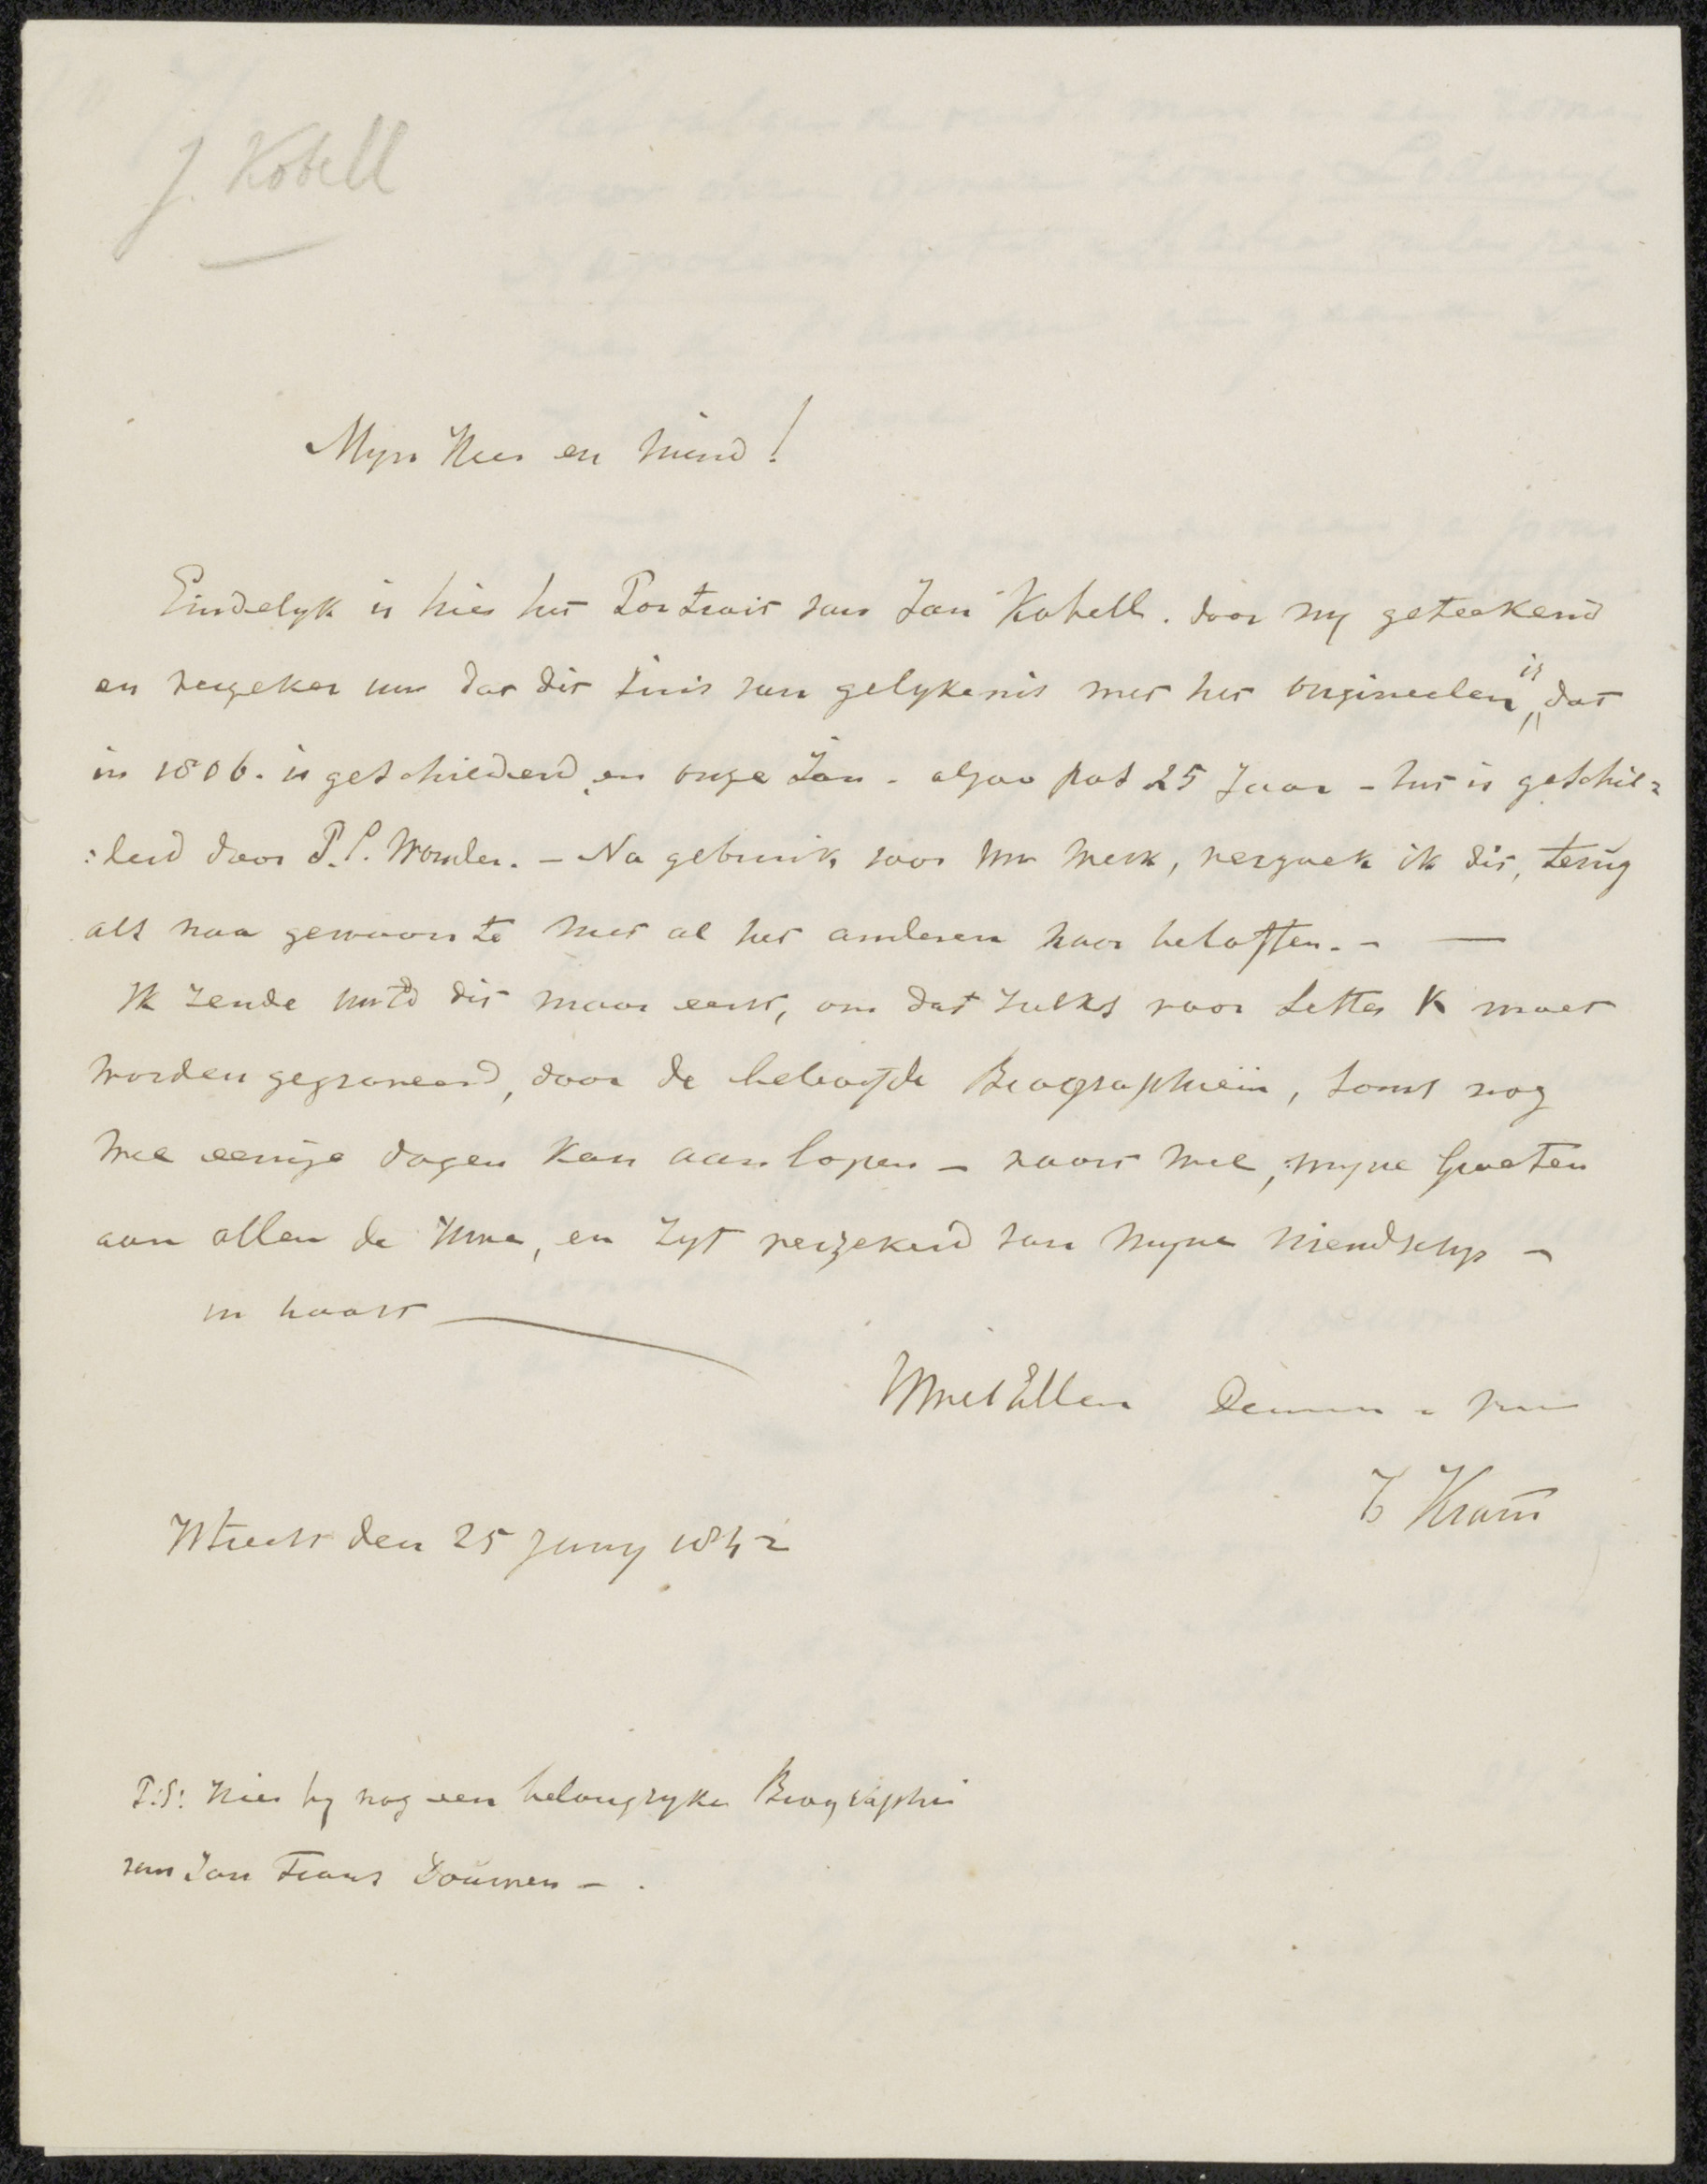 J. Kobell
Myn Heer en Vriend!
Eindelyk is hier het Portrait van Jan Kobell. door my geteekend
en verzeker uw dat dit juis van gelykenis met het origineelen is, dat
in 1806. is geschilderd, en onze Jan - alzoo pas 25 Jaar - het is geschil=
:derd door P.C. Wonder. - Na gebruik voor uw werk, verzoek ik dit, terug
als naa gewoonte met al het anderen haar beloften. - —
Ik zende dit maar eerst, om dat zulks voor Letter K moet
worden gegraveerd, door de beloofde Biographiëin, soms nog
wel eenige dagen kan aanlopen - vaart wel, myne Groeten
aan allen de Uwe, en zyt verzekerd van myne vriendschp -
in haast
UwelEdlen
C Kramm
Utrecht den 25 Juny 1842
P:S: Hier by nog een belangryke Biographie
van Jan Frans